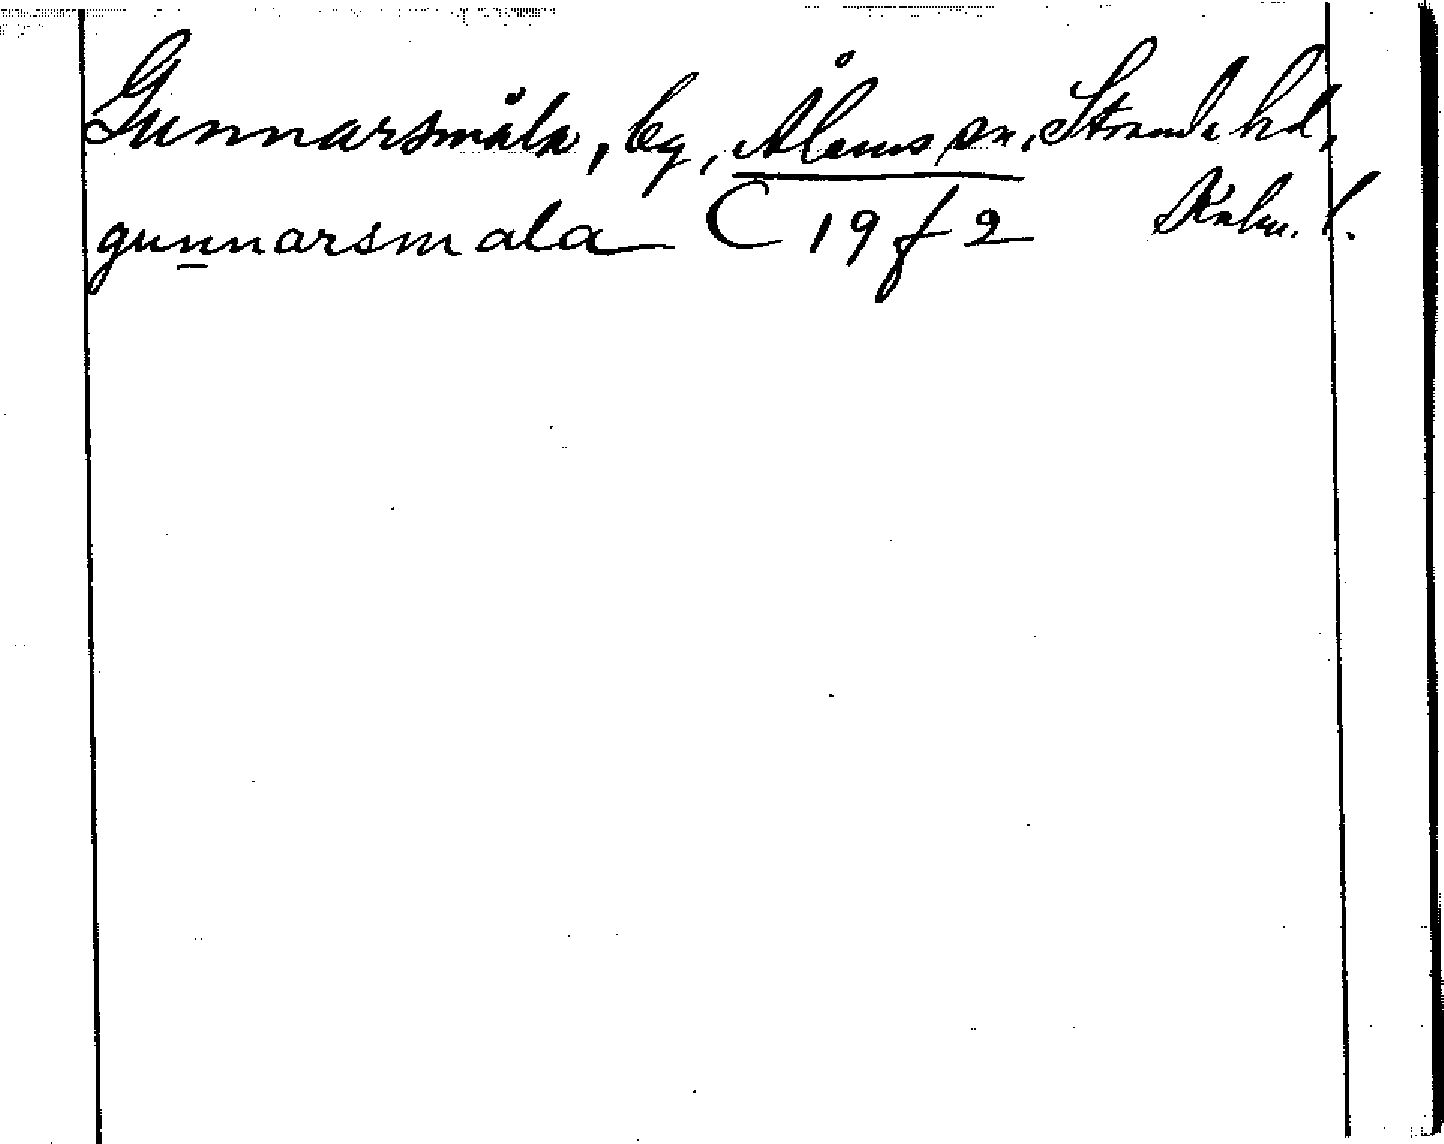 Gunnarsmåla, by, Ålems sn, Stranda hd,
gunnarsmala C 19 f 2 Kalm. l.